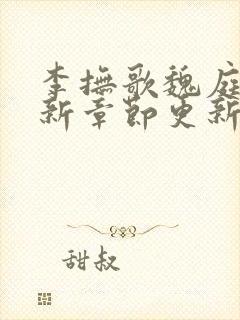 李撫歌魏庭
新章節更新
甜叔